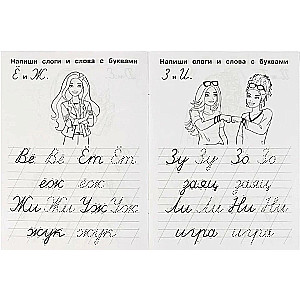 Напиши слоги и слова с буквами
Ё и Ж.
Вё Вё Ёт Ёт
ёж ёж
Жи Жи Уж Уж
жук жук
Напиши слоги и слова с буквами
З и И.
Зу Зу Зо Зо
заяц заяц
Ли Ли Ни Ни
игра игра